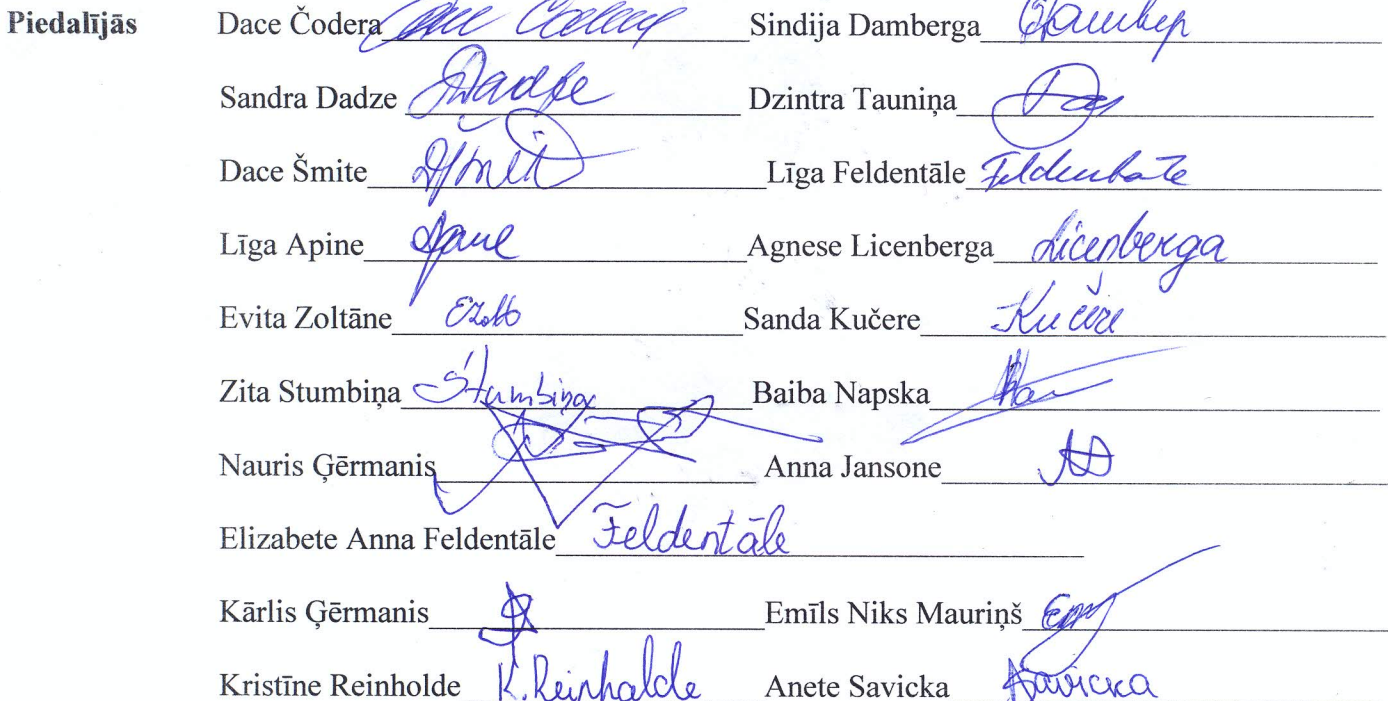 Piedalījās Dace Čodera Sindija Damberga
Sandra Dadze Dadze Dzintra Tauniņa
Dace Šmite Līga Feldentāle
Līga Apine Agnese Licenberga Licenberga
Evita Zoltāne Sanda Kučere Kučere
Zita Stumbiņa Stumbiņa Baiba Napska
Nauris Ģērmanis Anna Jansone
Elizabete Anna Feldentāle Feldentāle
Kārlis Ģērmanis Emīls Niks Mauriņš
Kristīne Reinholde K.Reinholde Anete Savicka ASavicka